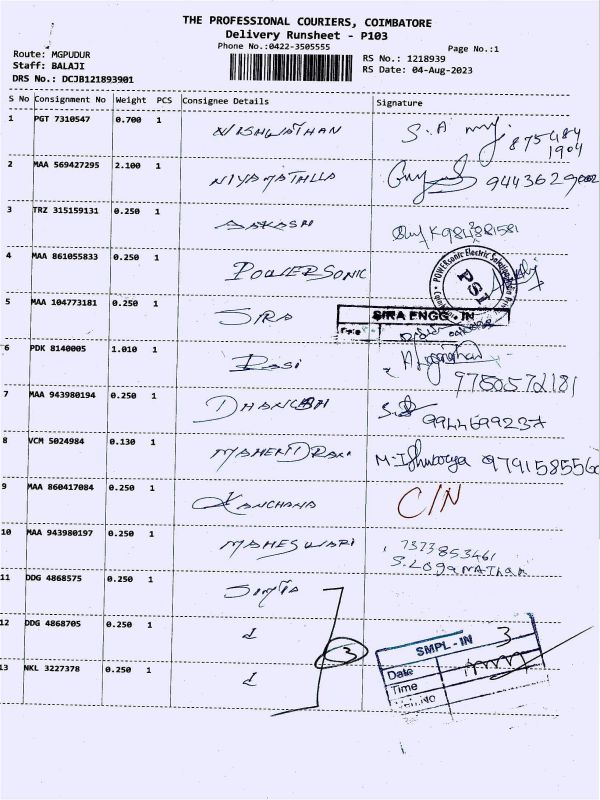 THE PROFESSIONAL COURIERS, COIMBATORE
Delivery Runsheet - P103
Phone No.:0422-3505555
Page No.:1
Route: MGPUDUR
Staff: BALAJI
DRS No.: DCJB121893901
RS No.: 1218939
RS Date: 04-Aug-2023
S No Consignment No Weight PCS Consignee Details Signature
1 PGT 7310547 0.700 1 VISHWATHAN S. A 875484
1904
2 MAA 569427295 2.100 1 NIYAMATHLLA
3 TRZ 315159131 0.250 1 AAKASH
4 MAA 861055833 0.250 1 POWERSONIC
PSI
5 MAA 104773181 0.250 1 SIRA SIRA ENGG - IN
6 PDK 8140005 1.010 1 Rasi
9750572181
7 MAA 943980194 0.250 1 DHANUSH 9944699237
8 VCM 5024984 0.130 1 MAHENDRAN M. Ishwarya 979158556
9 MAA 860417084 0.250 1 KANCHANA C/N
10 MAA 943980197 0.250 1 MAHESWARI 7373853461
S. LOGANATHAN
11 DDG 4868575 0.250 1
12 DDG 4868705 0.250 1 d 3
13 NKL 3227378 0.250 1 d
SMPL - IN 3
Date
Time